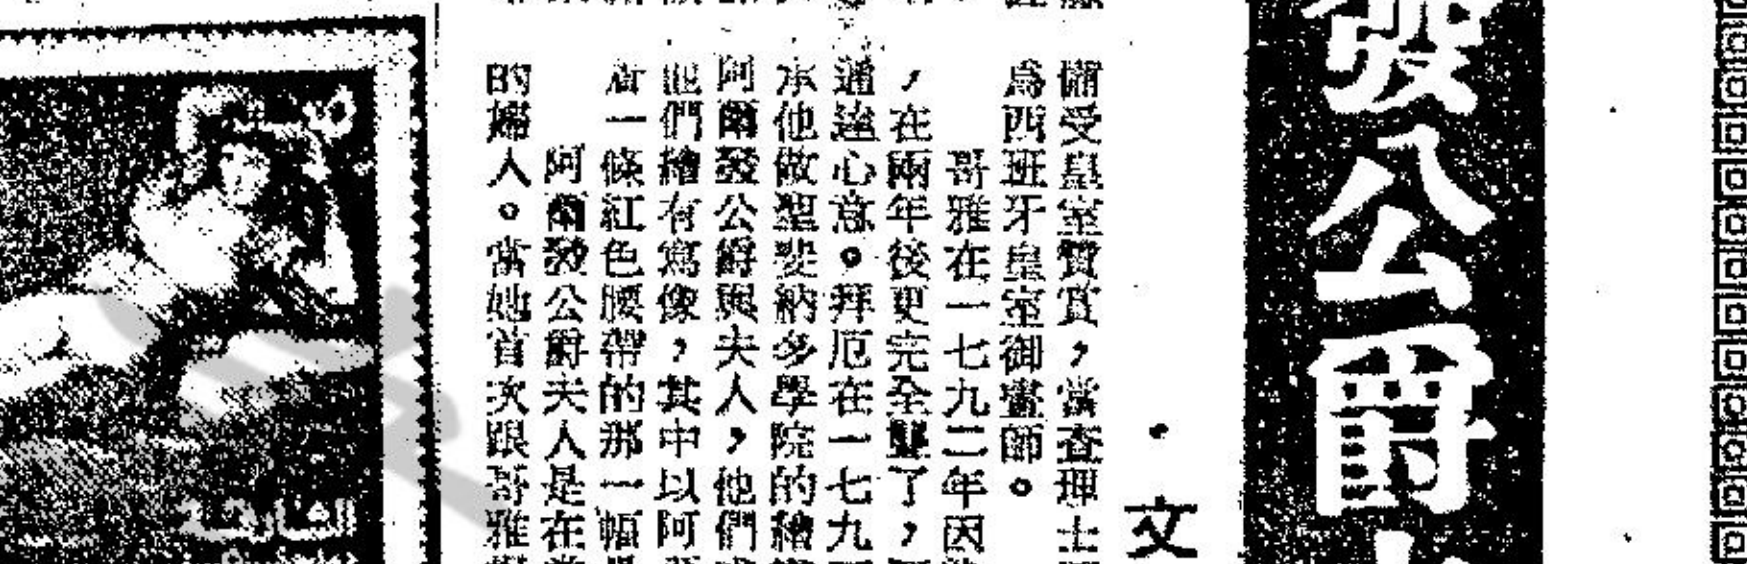 發公爵
文
備受皇室贊賞，當查理士
為西班牙皇室御畫師。
哥雅在一七九二年因
，在兩年後更完全聾了，
通達心意。拜厄在一七九
承他做聖斐納多學院的繪
阿爾發公爵與夫人，他們
他們繪有寫像，其中以阿
着一條紅色腰帶的那一幅
阿爾發公爵夫人是在
的婦人。當她首次跟哥雅